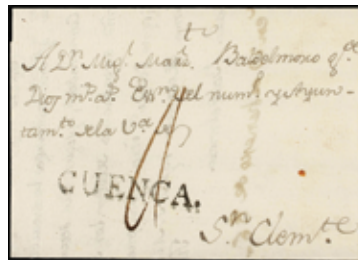 A Dn. Migl. Marz. Baldelmoro qe.
Dios ms. as. Essno. del numo. y Ayun-
tamto. de la Va. de
CUENCA.
Sn. Clemte